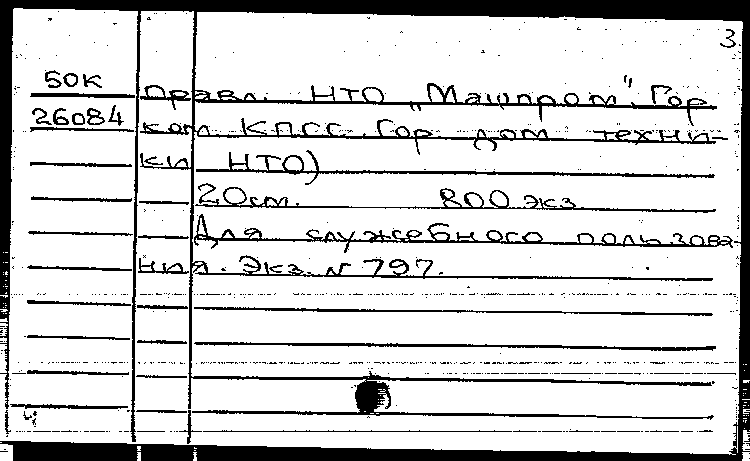 3.
50К
26084
Правл. НТО „Машпром", Гор
ком КПСС. Гор дом техни-
ки НТО)
20см. 800 экз
Для служебного пользова-
ния. Экз. № 797.